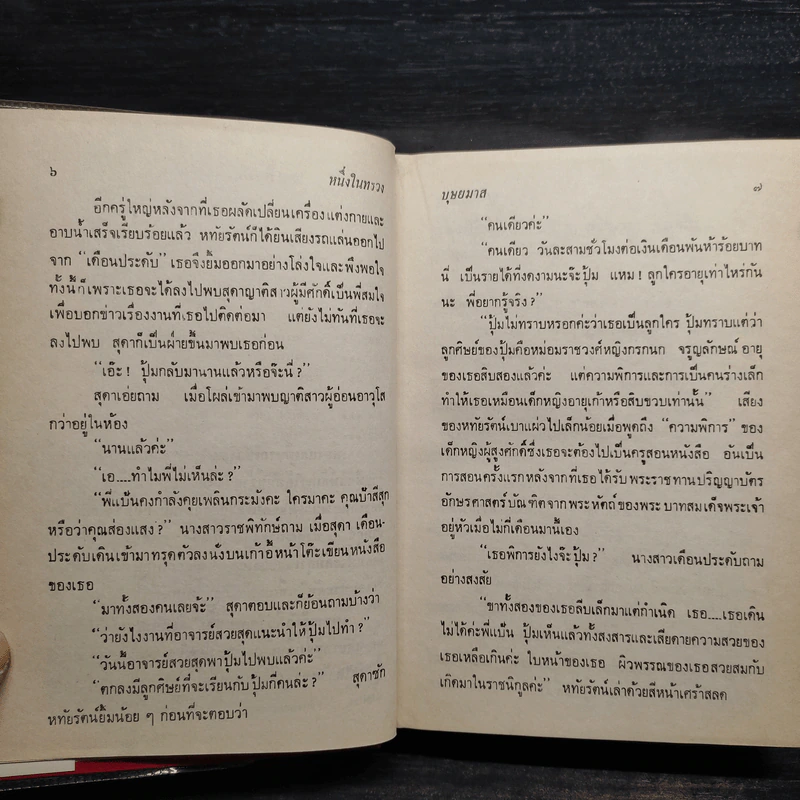 ๖
หนึ่งในทรวง
อีกครู่ใหญ่หลังจากที่เธอผลัดเปลี่ยนเครื่องแต่งกายและ
อาบน้ำเสร็จเรียบร้อยแล้ว หทัยรัตน์ก็ได้ยินเสียงรถแล่นออกไป
จาก “เดือนประดับ” เธอจึงยิ้มออกมาอย่างโล่งใจและพึงพอใจ
ทั้งนี้ก็เพราะเธอจะได้ลงไปพบสุดาญาติสาวผู้มีศักดิ์เป็นพี่สมใจ
เพื่อบอกข่าวเรื่องงานที่เธอไปติดต่อมา แต่ยังไม่ทันที่เธอจะ
ลงไปพบ สุดาก็เป็นฝ่ายขึ้นมาพบเธอก่อน
“เอ๊ะ! ปุ้มกลับมานานแล้วหรือจ๊ะนี่?”
สุดาเอ่ยถาม เมื่อโผล่เข้ามาพบญาติสาวผู้อ่อนอาวุโส
กว่าอยู่ในห้อง
“นานแล้วค่ะ”
“เอ....ทำไมพี่ไม่เห็นล่ะ?”
“พี่แป้นคงกำลังคุยเพลินกระมังคะ ใครมาคะ คุณบ๊าสีสุก
หรือว่าคุณส่องแสง?” นางสาวราชพิทักษ์ถาม เมื่อสุดา เดือน-
ประดับเดินเข้ามาทรุดตัวลงนั่งบนเก้าอี้หน้าโต๊ะเขียนหนังสือ
ของเธอ
“มาทั้งสองคนเลยจ้ะ” สุดาตอบและก็ย้อนถามบ้างว่า
“ว่ายังไงงานที่อาจารย์สวยสุดแนะนำให้ปุ้มไปทำ?”
“วันนี้อาจารย์สวยสุดพาปุ้มไปพบแล้วค่ะ”
“ตกลงมีลูกศิษย์ที่จะเรียนกับปุ้มกี่คนล่ะ?” สุดาซัก
หทัยรัตน์ยิ้มน้อย ๆ ก่อนที่จะตอบว่า
บุษยมาส
๗
“คนเดียวค่ะ”
“คนเดียว วันละสามชั่วโมงต่อเงินเดือนพันห้าร้อยบาท
นี่ เป็นรายได้ที่งดงามนะจ๊ะปุ้ม แหม! ลูกใครอายุเท่าไหร่กัน
นะ พี่อยากรู้จริง?”
“ปุ้มไม่ทราบหรอกค่ะว่าเธอเป็นลูกใคร ปุ้มทราบแต่ว่า
ลูกศิษย์ของปุ้มคือหม่อมราชวงศ์หญิงกรกนก จรูญลักษณ์ อายุ
ของเธอสิบสองแล้วค่ะ แต่ความพิการและการเป็นคนร่างเล็ก
ทำให้เธอเหมือนเด็กหญิงอายุเก้าหรือสิบขวบเท่านั้น” เสียง
ของหทัยรัตน์เบาแผ่วไปเล็กน้อยเมื่อพูดถึง “ความพิการ” ของ
เด็กหญิงผู้สูงศักดิ์ซึ่งเธอจะต้องไปเป็นครูสอนหนังสือ อันเป็น
การสอนครั้งแรกหลังจากที่เธอได้รับพระราชทานปริญญาบัตร
อักษรศาสตร์บัณฑิตจากพระหัตถ์ของพระบาทสมเด็จพระเจ้า
อยู่หัวเมื่อไม่กี่เดือนมานี้เอง
“เธอพิการยังไงจ๊ะปุ้ม?” นางสาวเดือนประดับถาม
อย่างสงสัย
“ขาทั้งสองของเธอลีบเล็กมาแต่กำเนิด เธอ....เธอเดิน
ไม่ได้ค่ะพี่แป้น ปุ้มเห็นแล้วทั้งสงสารและเสียดายความสวยของ
เธอเหลือเกินค่ะ ใบหน้าของเธอ ผิวพรรณของเธอสวยสมกับ
เกิดมาในราชนิกูลค่ะ” หทัยรัตน์เล่าด้วยสีหน้าเศร้าสลด